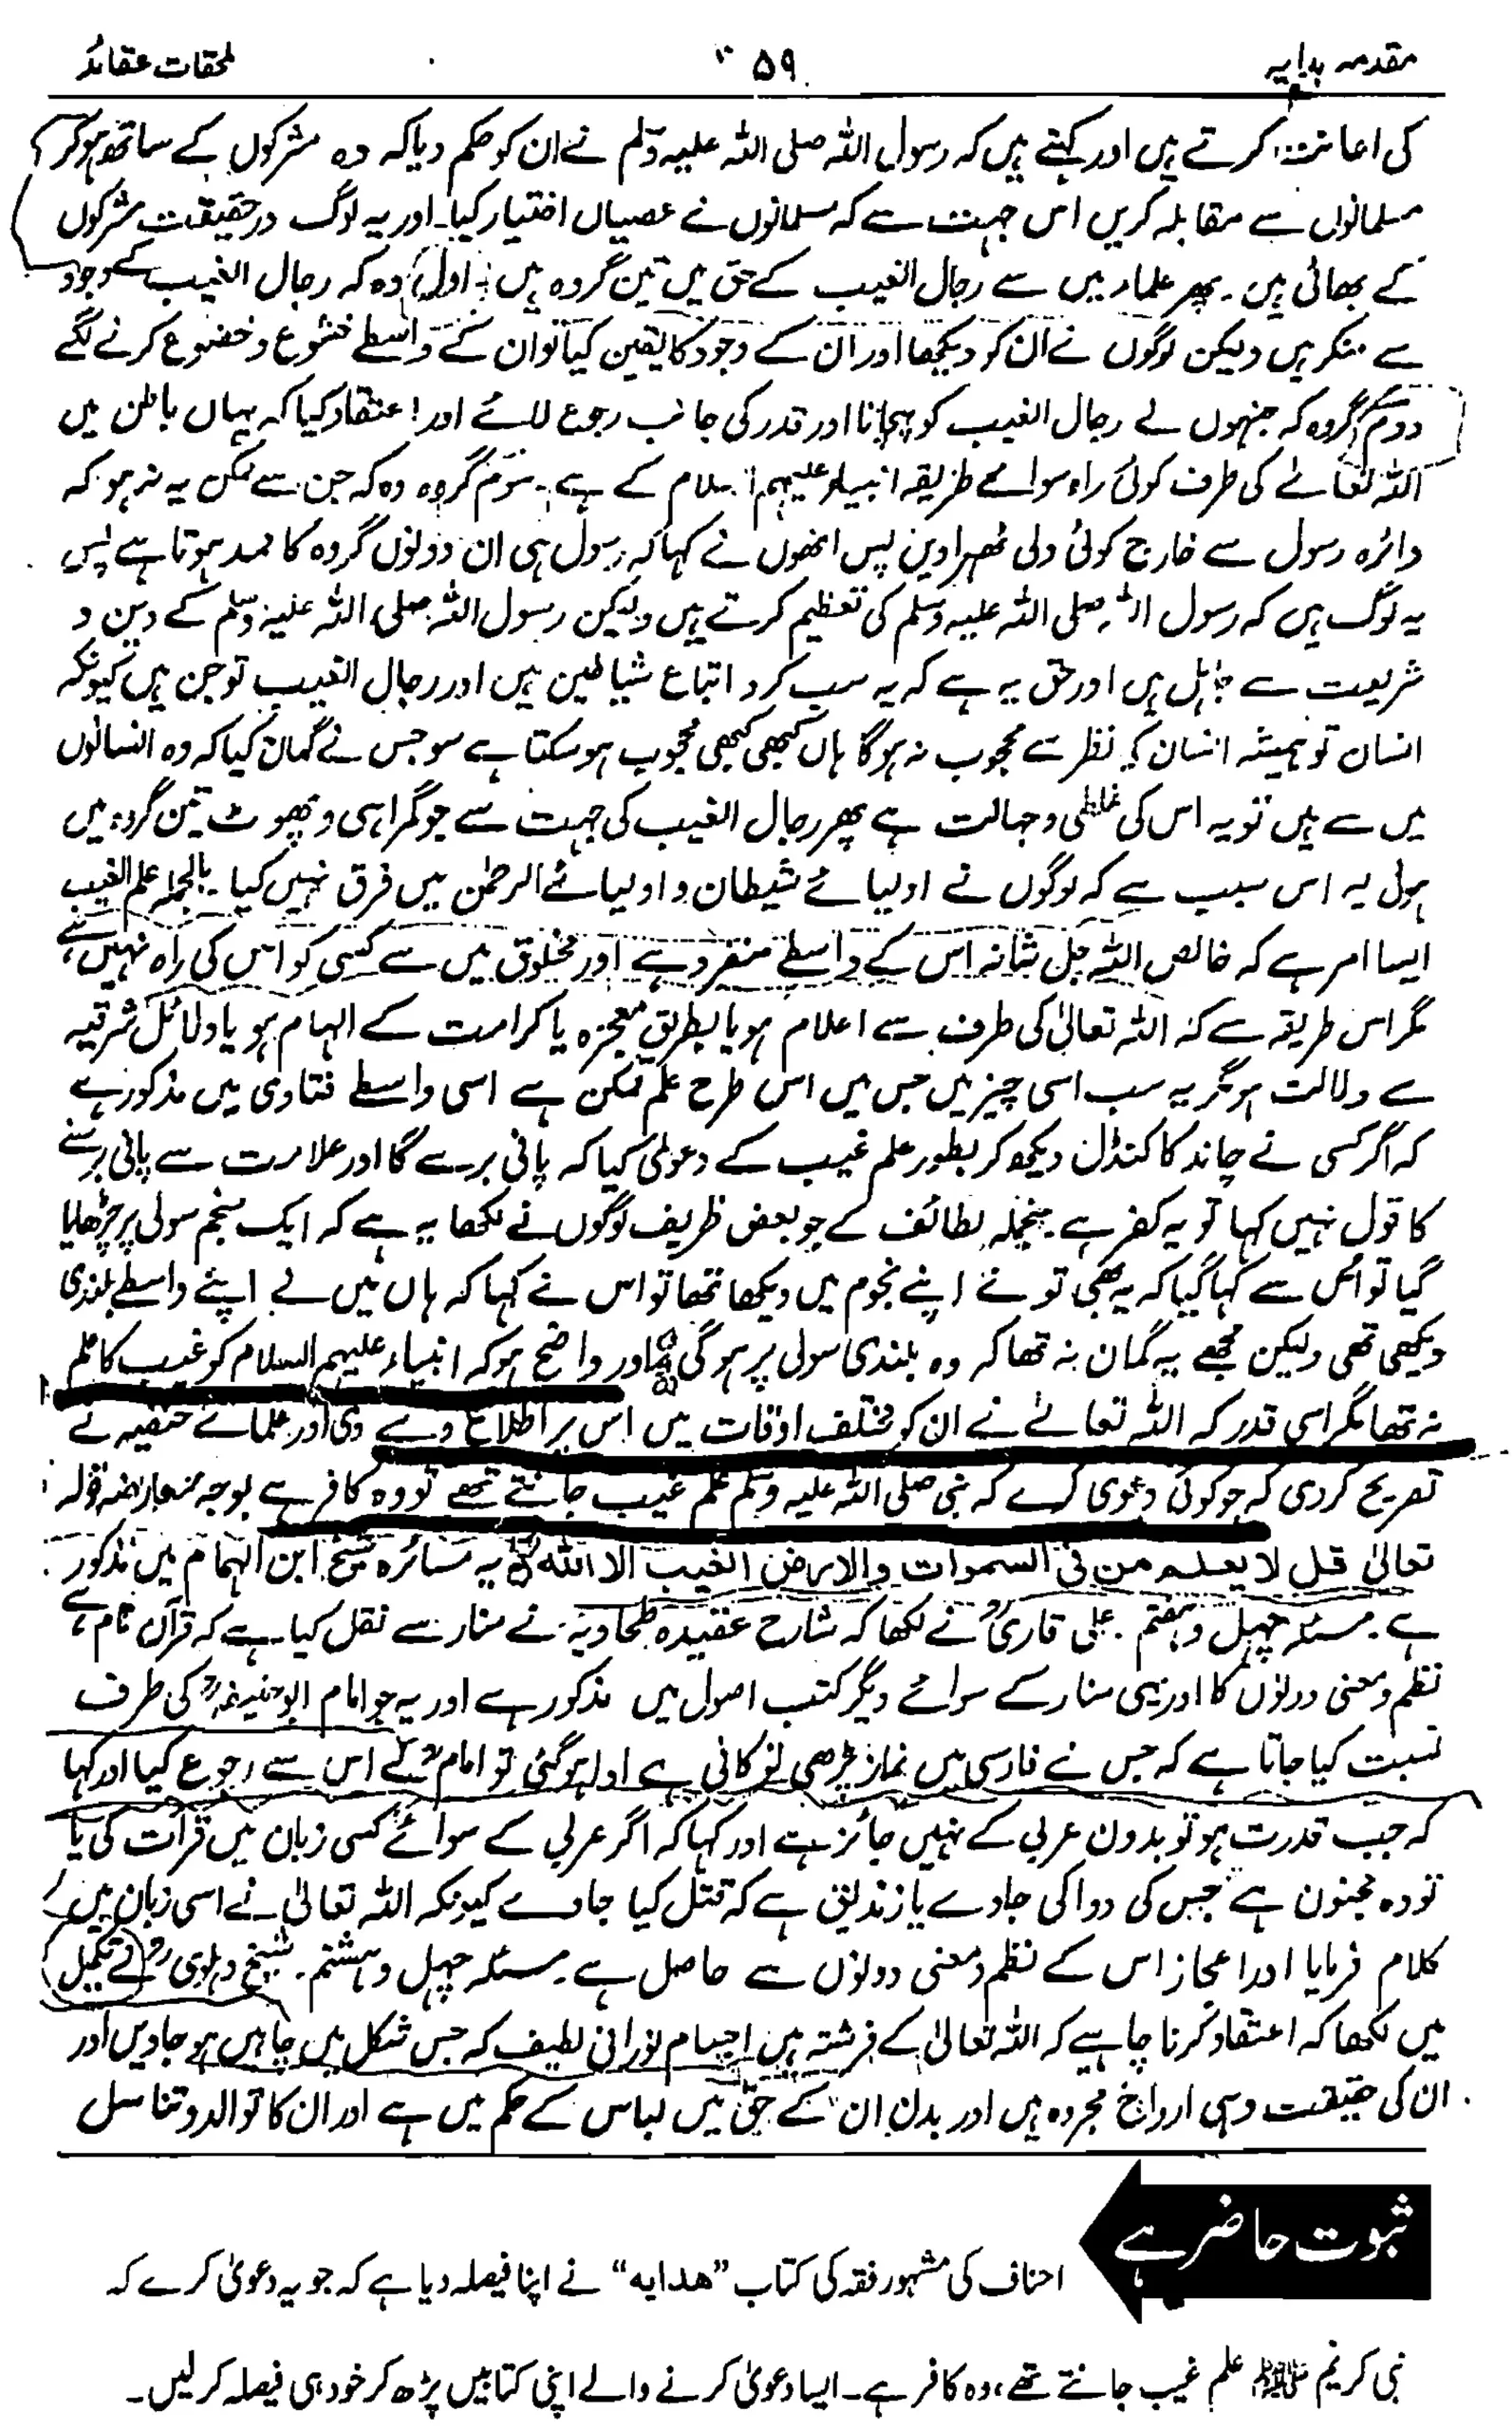 مقدمہ ہدایہ
۵۹
ملحقات عقائد
کی اعانت کرتے ہیں اور کہتے ہیں کہ رسول اللہ صلی اللہ علیہ وسلم نے ان کو حکم دیا کہ وہ مشرکوں کے ساتھ ہو کر
مسلمانوں سے مقابلہ کریں اس جہت سے کہ مسلمانوں نے عصیاں اختیار کیا۔ اور یہ لوگ درحقیقت مشرکوں
کے بھائی ہیں۔ پھر علماء میں سے رجال الغیب کے حق میں تین گروہ ہیں۔ اول وہ کہ رجال الغیب کے وجود
سے منکر ہیں ولیکن لوگوں نے ان کو دیکھا اور ان کے وجود کا یقین کیا تو ان کے واسطے خشوع و خضوع کرنے لگے
دوم گروہ کہ جنہوں نے رجال الغیب کو پہچانا اور قدر کی جانب رجوع لائے اور اعتقاد کیا کہ یہاں باطن میں
اللہ تعالےٰ کی طرف کوئی راہ سوائے طریقہ انبیاء علیہم السلام کے ہے۔ سوم گروہ وہ کہ جن سے ممکن یہ نہ ہو کہ
دائرہ رسول سے خارج کوئی ولی ٹھہرا دیں پس انھوں نے کہا کہ رسول ہی ان دونوں گروہ کا ممد ہوتا ہے پس
یہ لوگ ہیں کہ رسول اللہ صلی اللہ علیہ وسلم کی تعظیم کرتے ہیں ولیکن رسول اللہ صلی اللہ علیہ وسلم کے دین و
شریعت سے جاہل ہیں اور حق یہ ہے کہ یہ سب گروہ اتباع شیاطین ہیں اور رجال الغیب تو جن ہیں کیونکہ
انسان تو ہمیشہ انسان کی نظر سے محجوب نہ ہوگا ہاں کبھی کبھی محجوب ہو سکتا ہے سو جس نے گمان کیا کہ وہ انسانوں
میں سے ہیں تو یہ اس کی غلطی و جہالت ہے پھر رجال الغیب کی جہت سے جو گمراہی و پھوٹ تین گروہ میں
ہوئی یہ اس سبب سے کہ لوگوں نے اولیائے شیطان و اولیائے الرحمٰن میں فرق نہیں کیا۔ بالجملہ علم الغیب
ایسا امر ہے کہ خالص اللہ جل شانہ اس کے واسطے منفرد ہے اور مخلوق میں سے کسی کو اس کی راہ نہیں ہے
مگر اس طریقہ سے کہ اللہ تعالیٰ کی طرف سے اعلام ہو یا بطریق معجزہ یا کرامت کے الہام ہو یا دلائل شرقیہ
سے دلالت ہو مگر یہ سب اسی چیز میں جس میں اس طرح علم ممکن ہے اسی واسطے فتاوی میں مذکور ہے
کہ اگر کسی نے چاند کا کنڈل دیکھ کر بطور علم غیب کے دعوٰی کیا کہ پانی برسے گا اور علامت سے پانی برسنے
کا قول نہیں کہا تو یہ کفر ہے۔ منجملہ لطائف کے جو بعض ظریف لوگوں نے لکھا یہ ہے کہ ایک منجم سولی پر چڑھایا
گیا تو اس سے کہا گیا کہ یہ بھی تو نے اپنے نجوم میں دیکھا تھا تو اس نے کہا کہ ہاں میں نے اپنے واسطے بلندی
دیکھی تھی ولیکن مجھے یہ گمان نہ تھا کہ وہ بلندی سولی پر ہوگی اور واضح ہو کہ انبیاء علیہم السلام کو غیب کا علم
نہ تھا مگر اسی قدر کہ اللہ تعالےٰ نے ان کو مختلف اوقات میں اس پر اطلاع دے دی اور علمائے حنفیہ نے
تصریح کر دی کہ جو کوئی دعوی کرے کہ نبی صلی اللہ علیہ وسلم علم غیب جانتے تھے تو وہ کافر ہے بوجہ معارضہ قولہ
تعالیٰ قل لا یعلم من فی السموات والارض الغیب الا اللہ یہ مسائرہ شیخ ابن الہمام میں مذکور
ہے۔ مسئلہ چہل و ہفتم۔ علی قاریؒ نے لکھا کہ شارح عقیدہ طحاویہ نے منار سے نقل کیا ہے کہ قرآن نام ہے
نظم و معنی دونوں کا اور یہی منار کے سوائے دیگر کتب اصول میں مذکور ہے اور یہ جو امام ابوحنیفہؒ کی طرف
نسبت کیا جاتا ہے کہ جس نے فارسی میں نماز پڑھی تو کافی ہے ادا ہو گئی تو امامؒ نے اس سے رجوع کیا اور کہا
کہ جب قدرت ہو تو بدون عربی کے نہیں جائز ہے اور کہا کہ اگر عربی کے سوائے کسی زبان میں قرأت کی یا
تو وہ مجنون ہے جس کی دوا کی جاوے یا زندیق ہے کہ قتل کیا جاوے کیونکہ اللہ تعالیٰ نے اسی زبان میں
کلام فرمایا اور اعجاز اس کے نظم و معنی دونوں سے حاصل ہے۔ مسئلہ چہل و ہشتم۔ شیخ دہلویؒ نے تکمیل
میں لکھا کہ اعتقاد کرنا چاہیے کہ اللہ تعالیٰ کے فرشتہ ہیں اجسام نورانی لطیف کہ جس شکل میں چاہیں ہو جاویں اور
ان کی حقیقت وہی ارواح مجردہ ہیں اور بدن ان کے حق میں لباس کے حکم میں ہے اور ان کا توالد و تناسل
ثبوت حاضر ہے
احناف کی مشہور فقہ کی کتاب "ھدایہ" نے اپنا فیصلہ دیا ہے کہ جو یہ دعویٰ کرے کہ
نبی کریم ﷺ علم غیب جانتے تھے، وہ کافر ہے۔ ایسا دعویٰ کرنے والے اپنی کتابیں پڑھ کر خود ہی فیصلہ کر لیں۔